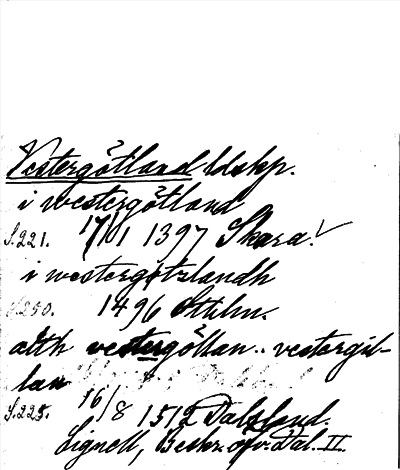 Vestergötland ldskp.
i westergötland
S.221. 17/01 1397 Skara!
i westergötzlandh
S.250. 1496 Sthlm.
alth vestergöllan.. vestergil-
lan
S.225. 16/8 1512 Dalsland.
Lignell, Beskr. öfv. Dal. II.